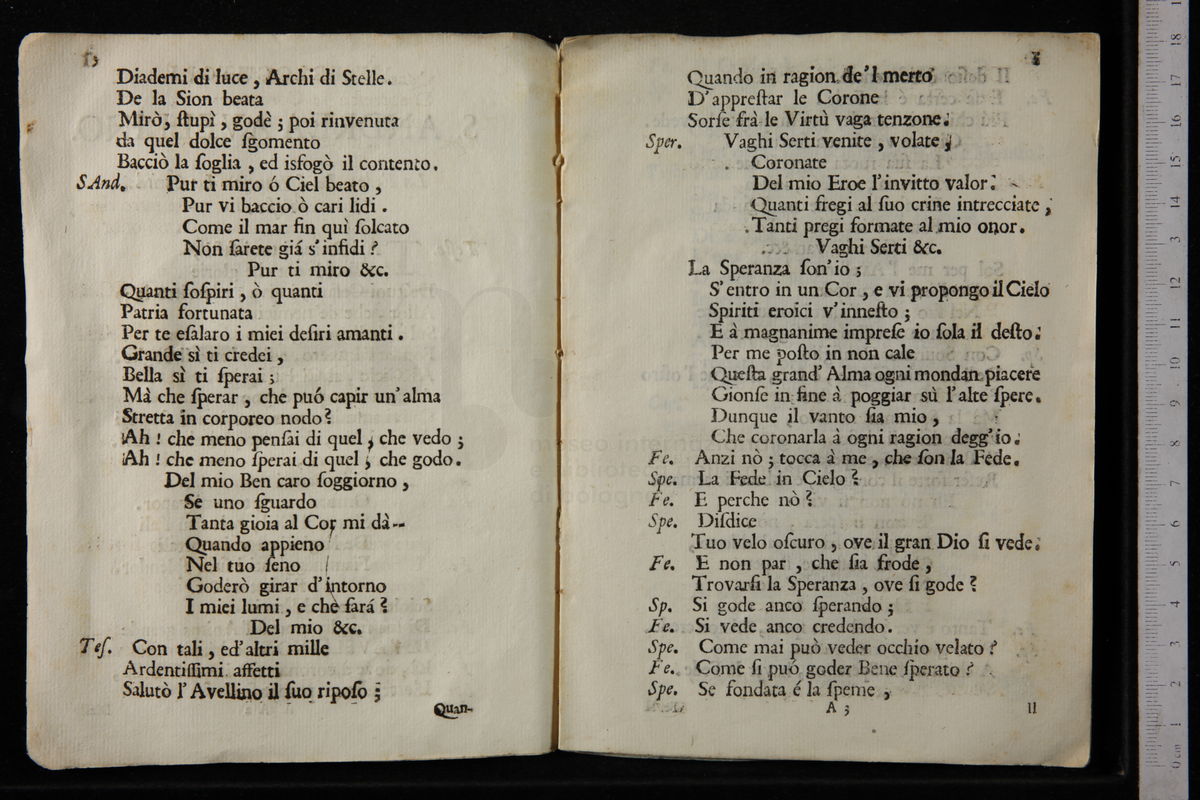 Diademi di luce , Archi di Stelle.
De la Sion beata
Mirò, ſtupì , godè ; poi rinvenuta
da quel dolce ſgomento
Bacciò la ſoglia , ed isfogò il contento.
SAnd. Pur ti miro ó Ciel beato ,
Pur vi baccio ò cari lidi .
Come il mar fin quì ſolcato
Non ſarete giá s'infidi ?
Pur ti miro &c.
Quanti ſoſpiri , ò quanti
Patria fortunata
Per te eſalaro i miei deſiri amanti .
Grande sì ti credei ,
Bella sì ti ſperai ;
Mà che ſperar , che puó capir un'alma
Stretta in corporeo nodo?
Ah ! che meno penſai di quel , che vedo ;
Ah ! che meno ſperai di quel , che godo.
Del mio Ben caro ſoggiorno ,
Se uno ſguardo
Tanta gioia al Cor mi dà--
Quando appieno
Nel tuo ſeno
Goderò girar d'intorno
I miei lumi , e che ſará ?
Del mio &c.
Teſ. Con tali , ed'altri mille
Ardentiſſimi affetti
Salutò l'Avellino il ſuo ripoſo ;
Quan-
Quando in ragion de'l merto
D'appreſtar le Corone
Sorſe frà le Virtù vaga tenzone.
Sper. Vaghi Serti venite , volate ,
Coronate
Del mio Eroe l'invitto valor.
Quanti fregi al ſuo crine intrecciate ,
Tanti pregi formate al mio onor.
Vaghi Serti &c.
La Speranza ſon'io ;
S'entro in un Cor , e vi propongo il Cielo
Spiriti eroici v'inneſto ;
E à magnanime impreſe io ſola il deſto.
Per me poſto in non cale
Queſta grand'Alma ogni mondan piacere
Gionſe in fine à poggiar sù l'alte ſpere.
Dunque il vanto ſia mio ,
Che coronarla à ogni ragion degg'io.
Fe. Anzi nò ; tocca à me , che ſon la Fede.
Spe. La Fede in Cielo ?
Fe. E perche nò ?
Spe. Diſdice
Tuo velo oſcuro , ove il gran Dio ſi vede.
Fe. E non par , che ſia frode ,
Trovarſi la Speranza , ove ſi gode ?
Sp. Si gode anco ſperando ;
Fe. Si vede anco credendo.
Spe. Come mai può veder occhio velato ?
Fe. Come ſi puó goder Bene ſperato ?
Spe. Se fondata é la ſpeme ,
A 3
Il